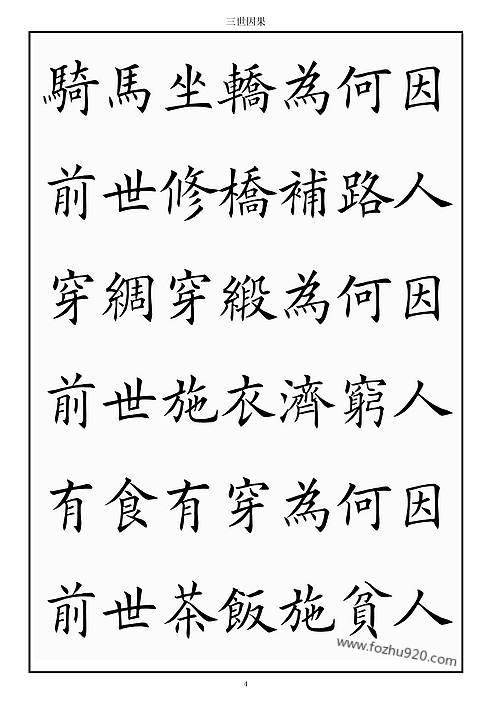 三世因果
騎馬坐轎為何因
前世修橋補路人
穿綢穿緞為何因
前世施衣濟窮人
有食有穿為何因
前世茶飯施貧人
www.fozhu920.com
4